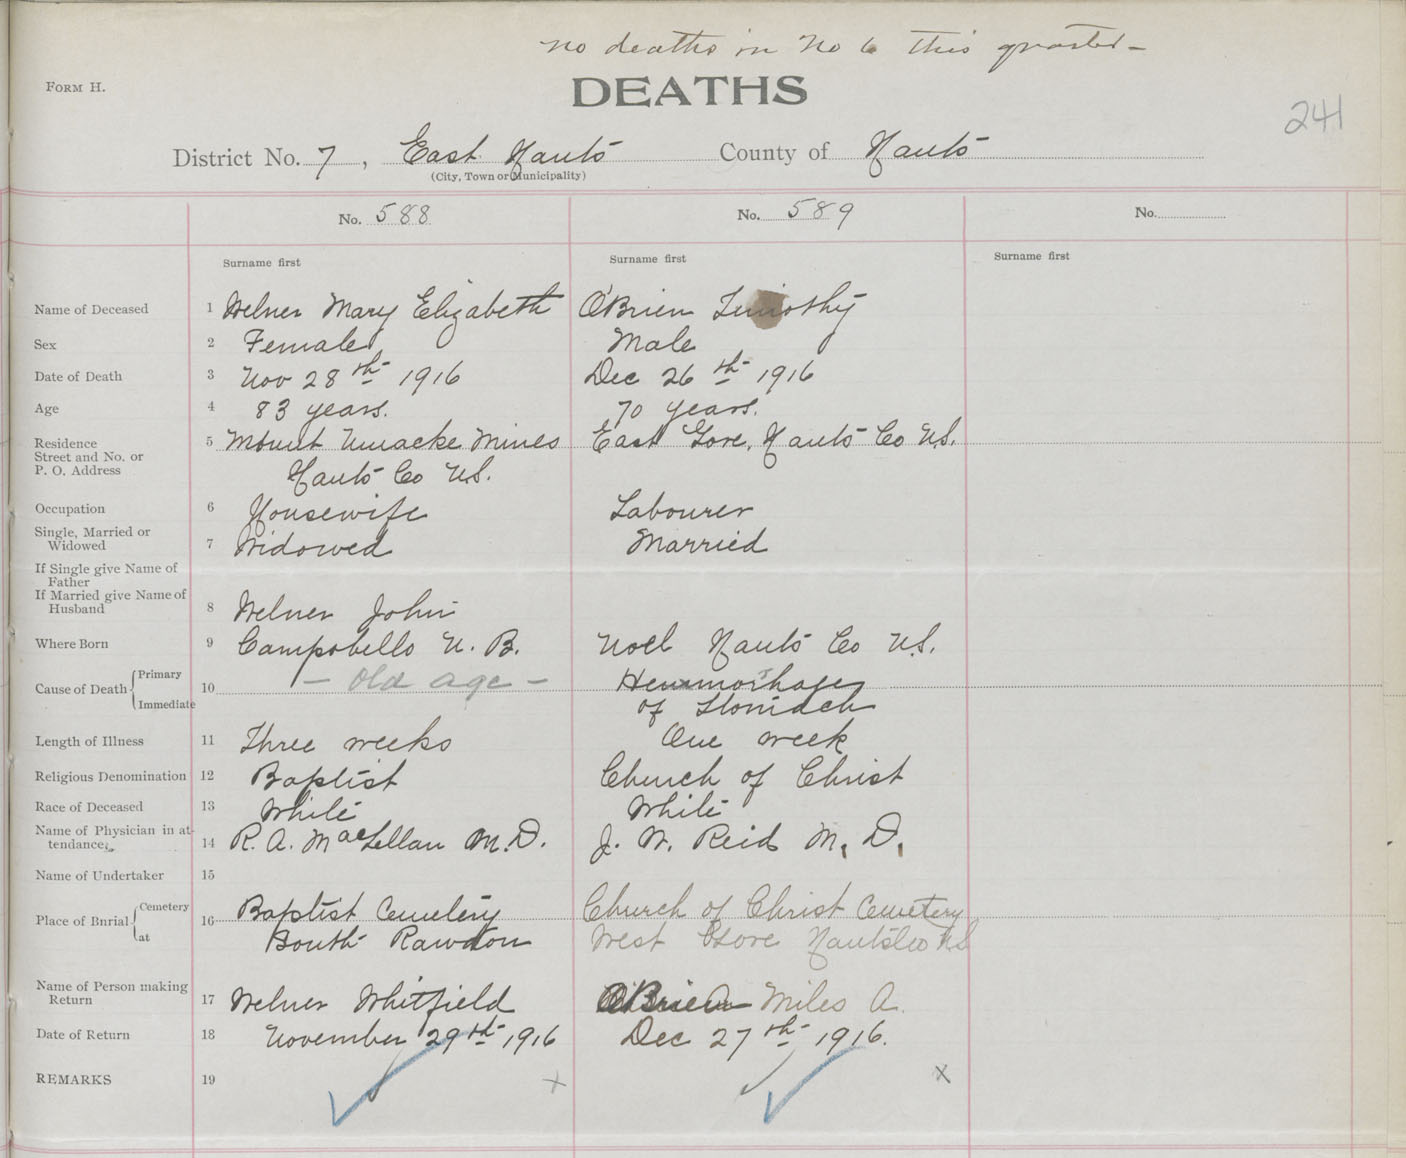 no deaths in No 6 this quarter -
FORM H.
DEATHS
241
District No. 7, East Hants County of Hants
(City, Town or Municipality)
No. 588 No. 589 No.
Surname first Surname first Surname first
Name of Deceased 1 Welner Mary Elizabeth O'Brien Timothy
Sex 2 Female Male
Date of Death 3 Nov 28th 1916 Dec 26th 1916
Age 4 83 years. 70 years.
Residence 5 Mount Uniacke Mines East Gore, Hants Co N.S.
Street and No. or
P. O. Address Hants Co N.S.
Occupation 6 Housewife Labourer
Single, Married or
Widowed 7 Widowed Married
If Single give Name of
Father
If Married give Name of
Husband 8 Welner John
Where Born 9 Campobello N. B. Noel Hants Co N.S.
Cause of Death Primary 10 - Old age - Hemmorhage
Immediate of Stomach
Length of Illness 11 Three weeks One week
Religious Denomination 12 Baptist Church of Christ
Race of Deceased 13 White White
Name of Physician in at-
tendance 14 R. A. MacLellan M.D. J. W. Reid M. D.
Name of Undertaker 15
Place of Bnrial Cemetery 16 Baptist Cemetery Church of Christ Cemetery
at South Rawdon West Gore Hants Co N.S
Name of Person making
Return 17 Welner Whitfield O'Brien Miles A.
Date of Return 18 November 29th 1916 Dec 27th 1916.
REMARKS 19 x x